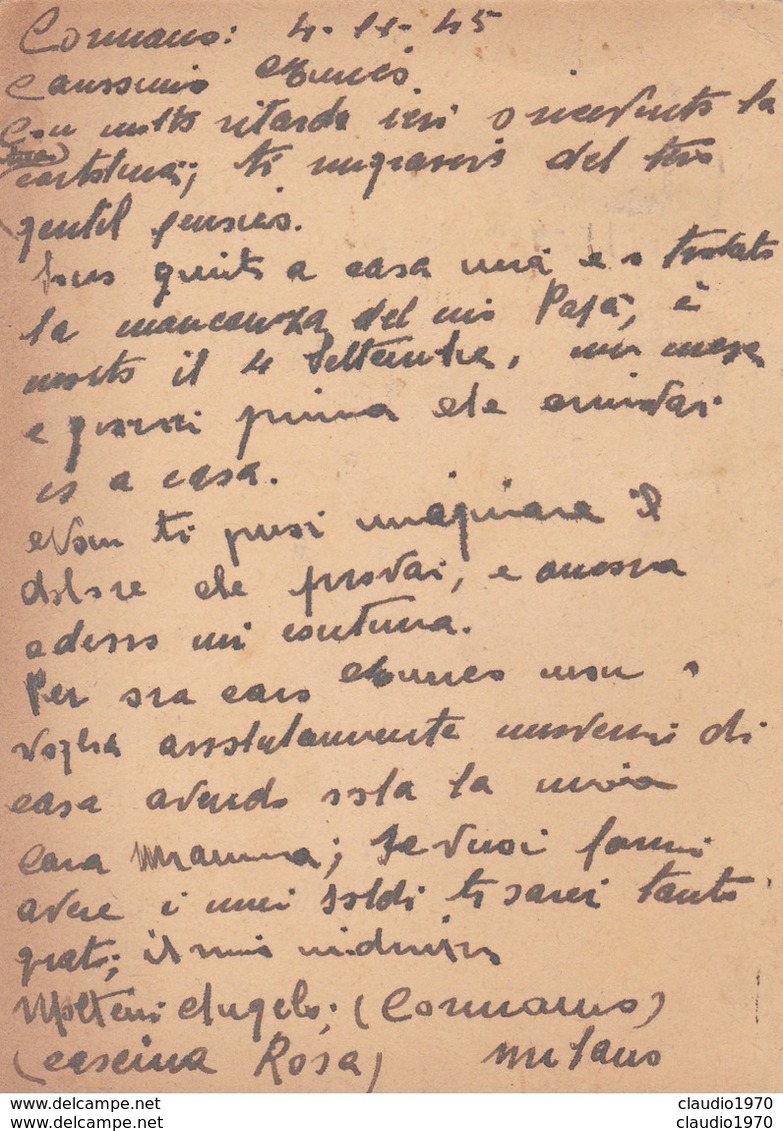 Cormano: 4-11-45
Carissimo
Con molto ritardo ieri o ricevuto la
(tua)
cartolina; ti ringrazio del tuo
gentil pensiero.
Sono giunto a casa mia e o trovato
la mancanza del mio Papà, è
morto il 4 Settembre, un mese
e giorni prima che arrivas-
io a casa.
Non ti puoi imaginare il
dolore che provai, e ancora
adesso mi continua.
Per ora caro non o
voglia assolutamente muovermi di
casa avendo sola la mia
cara Mamma; se vuoi farmi
avere i miei soldi ti sarei tanto
grato; il mio indirizzo
Molteni Angelo; (Cormano)
(cascina Rosa) Milano
www.delcampe.net claudio1970
www.delcampe.net claudio1970